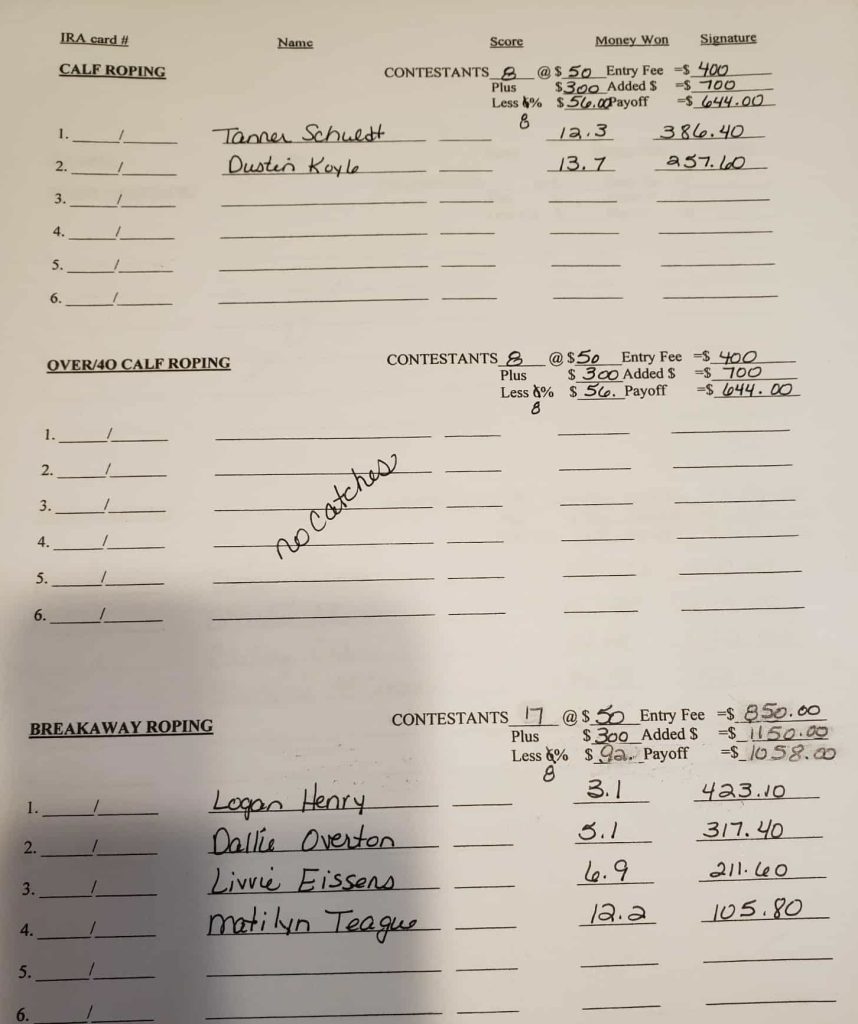 IRA card # Name Score Money Won Signature
CALF ROPING CONTESTANTS 8 @ $ 50 Entry Fee =$ 400
Plus $300 Added $ =$ 700
Less 6% $ 56.00 Payoff =$ 644.00
8
1. / Tanner Schuldt 12.3 386.40
2. / Dustin Koyle 13.7 257.60
3. /
4. /
5. /
6. /
OVER/40 CALF ROPING CONTESTANTS 8 @ $50 Entry Fee =$ 400
Plus $ 300 Added $ =$ 700
Less 6% $ 56. Payoff =$ 644.00
8
1. /
2. /
no catches
3. /
4. /
5. /
6. /
BREAKAWAY ROPING CONTESTANTS 17 @ $ 50 Entry Fee =$ 850.00
Plus $ 300 Added $ =$ 1150.00
Less 6% $ 92. Payoff =$ 1058.00
8
1. / Logan Henry 3.1 423.10
2. / Dallie Overton 5.1 317.40
3. / Livvie Eissens 6.9 211.60
4. / Matilyn Teague 12.2 105.80
5. /
6. /